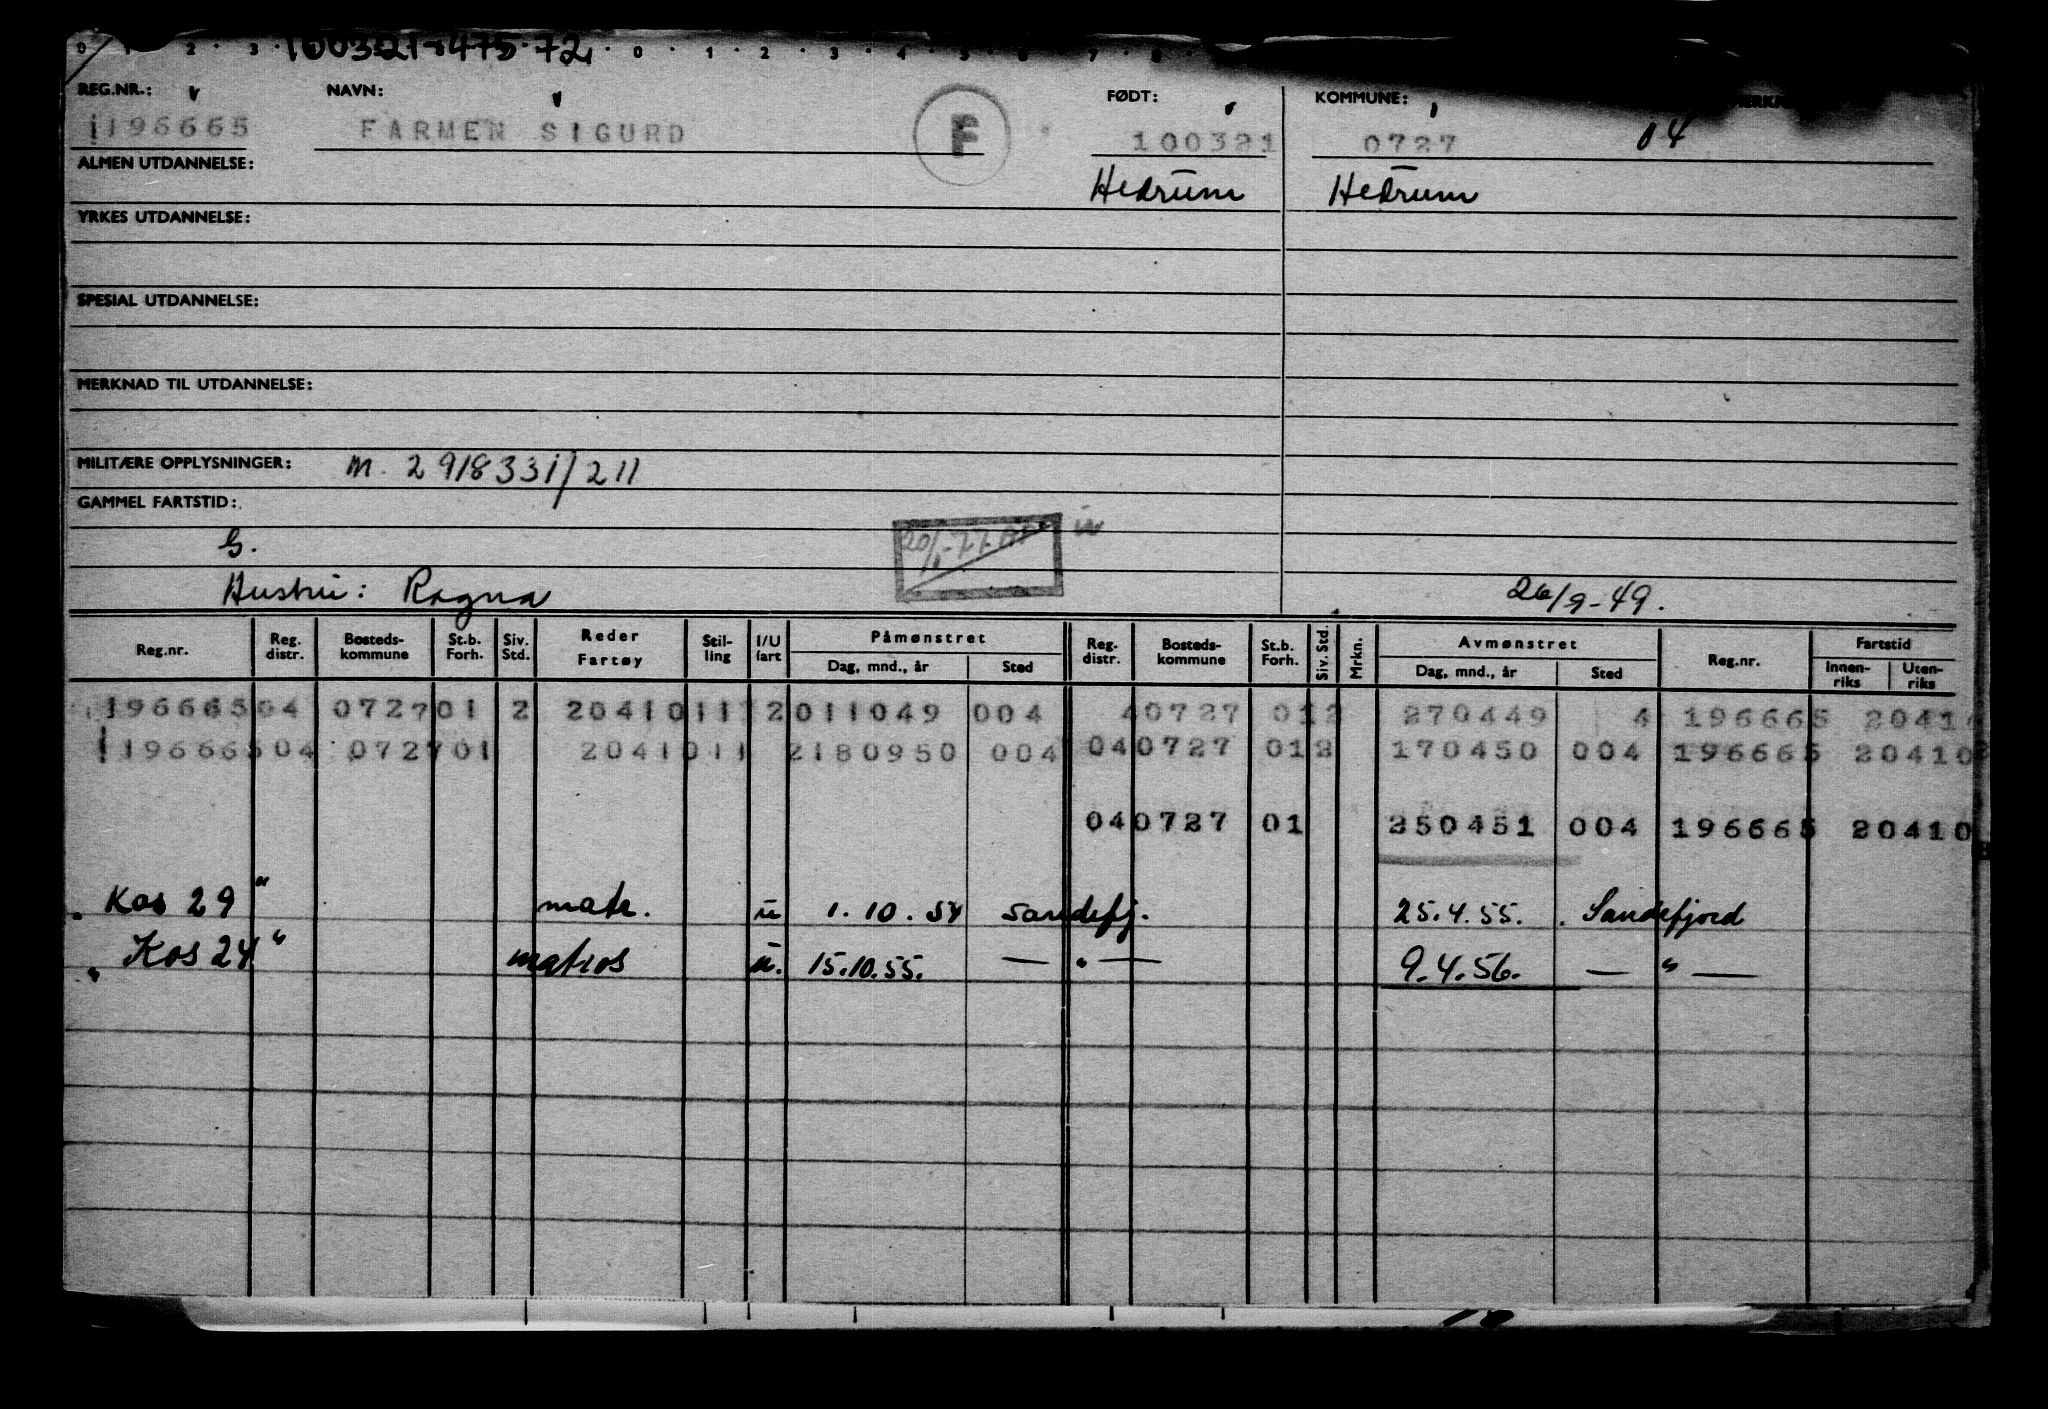 100321-475-72
REG.NR.: NAVN: FØDT: KOMMUNE:
196665 FARMEN SIGURD F 100321 0727 04
ALMEN UTDANNELSE: Hedrum Hedrum
YRKES UTDANNELSE:
SPESIAL UTDANNELSE:
MERKNAD TIL UTDANNELSE:
MILITÆRE OPPLYSNINGER: M. 2918331/211
GAMMEL FARTSTID:
G.
Hustru: Ragna 26/9-49.
Reg.nr. Reg. distr. Bosteds-kommune St.b. Forh. Siv. Std. Reder Fartøy Stil-ling I/U fart Påmønstret Dag, mnd., år Sted Reg. distr. Bosteds-kommune St.b. Forh. Siv. Std. Mrkn. Avmønstret Dag, mnd., år Sted Reg.nr. Fartstid Innen-riks Uten-riks
196665 04 0727 01 2 2041011 2 011049 004 4 0727 01 2 270449 4 196665 2041
196665 04 0727 01 2041011 2 180950 004 04 0727 01 2 170450 004 196665 20410
04 0727 01 250451 004 196665 20410
"Kos 29" matr. u 1.10.54 Sandefj. 25.4.55. Sandefjord
"Kos 24" matros u. 15.10.55. — " — 9.4.56. — " —